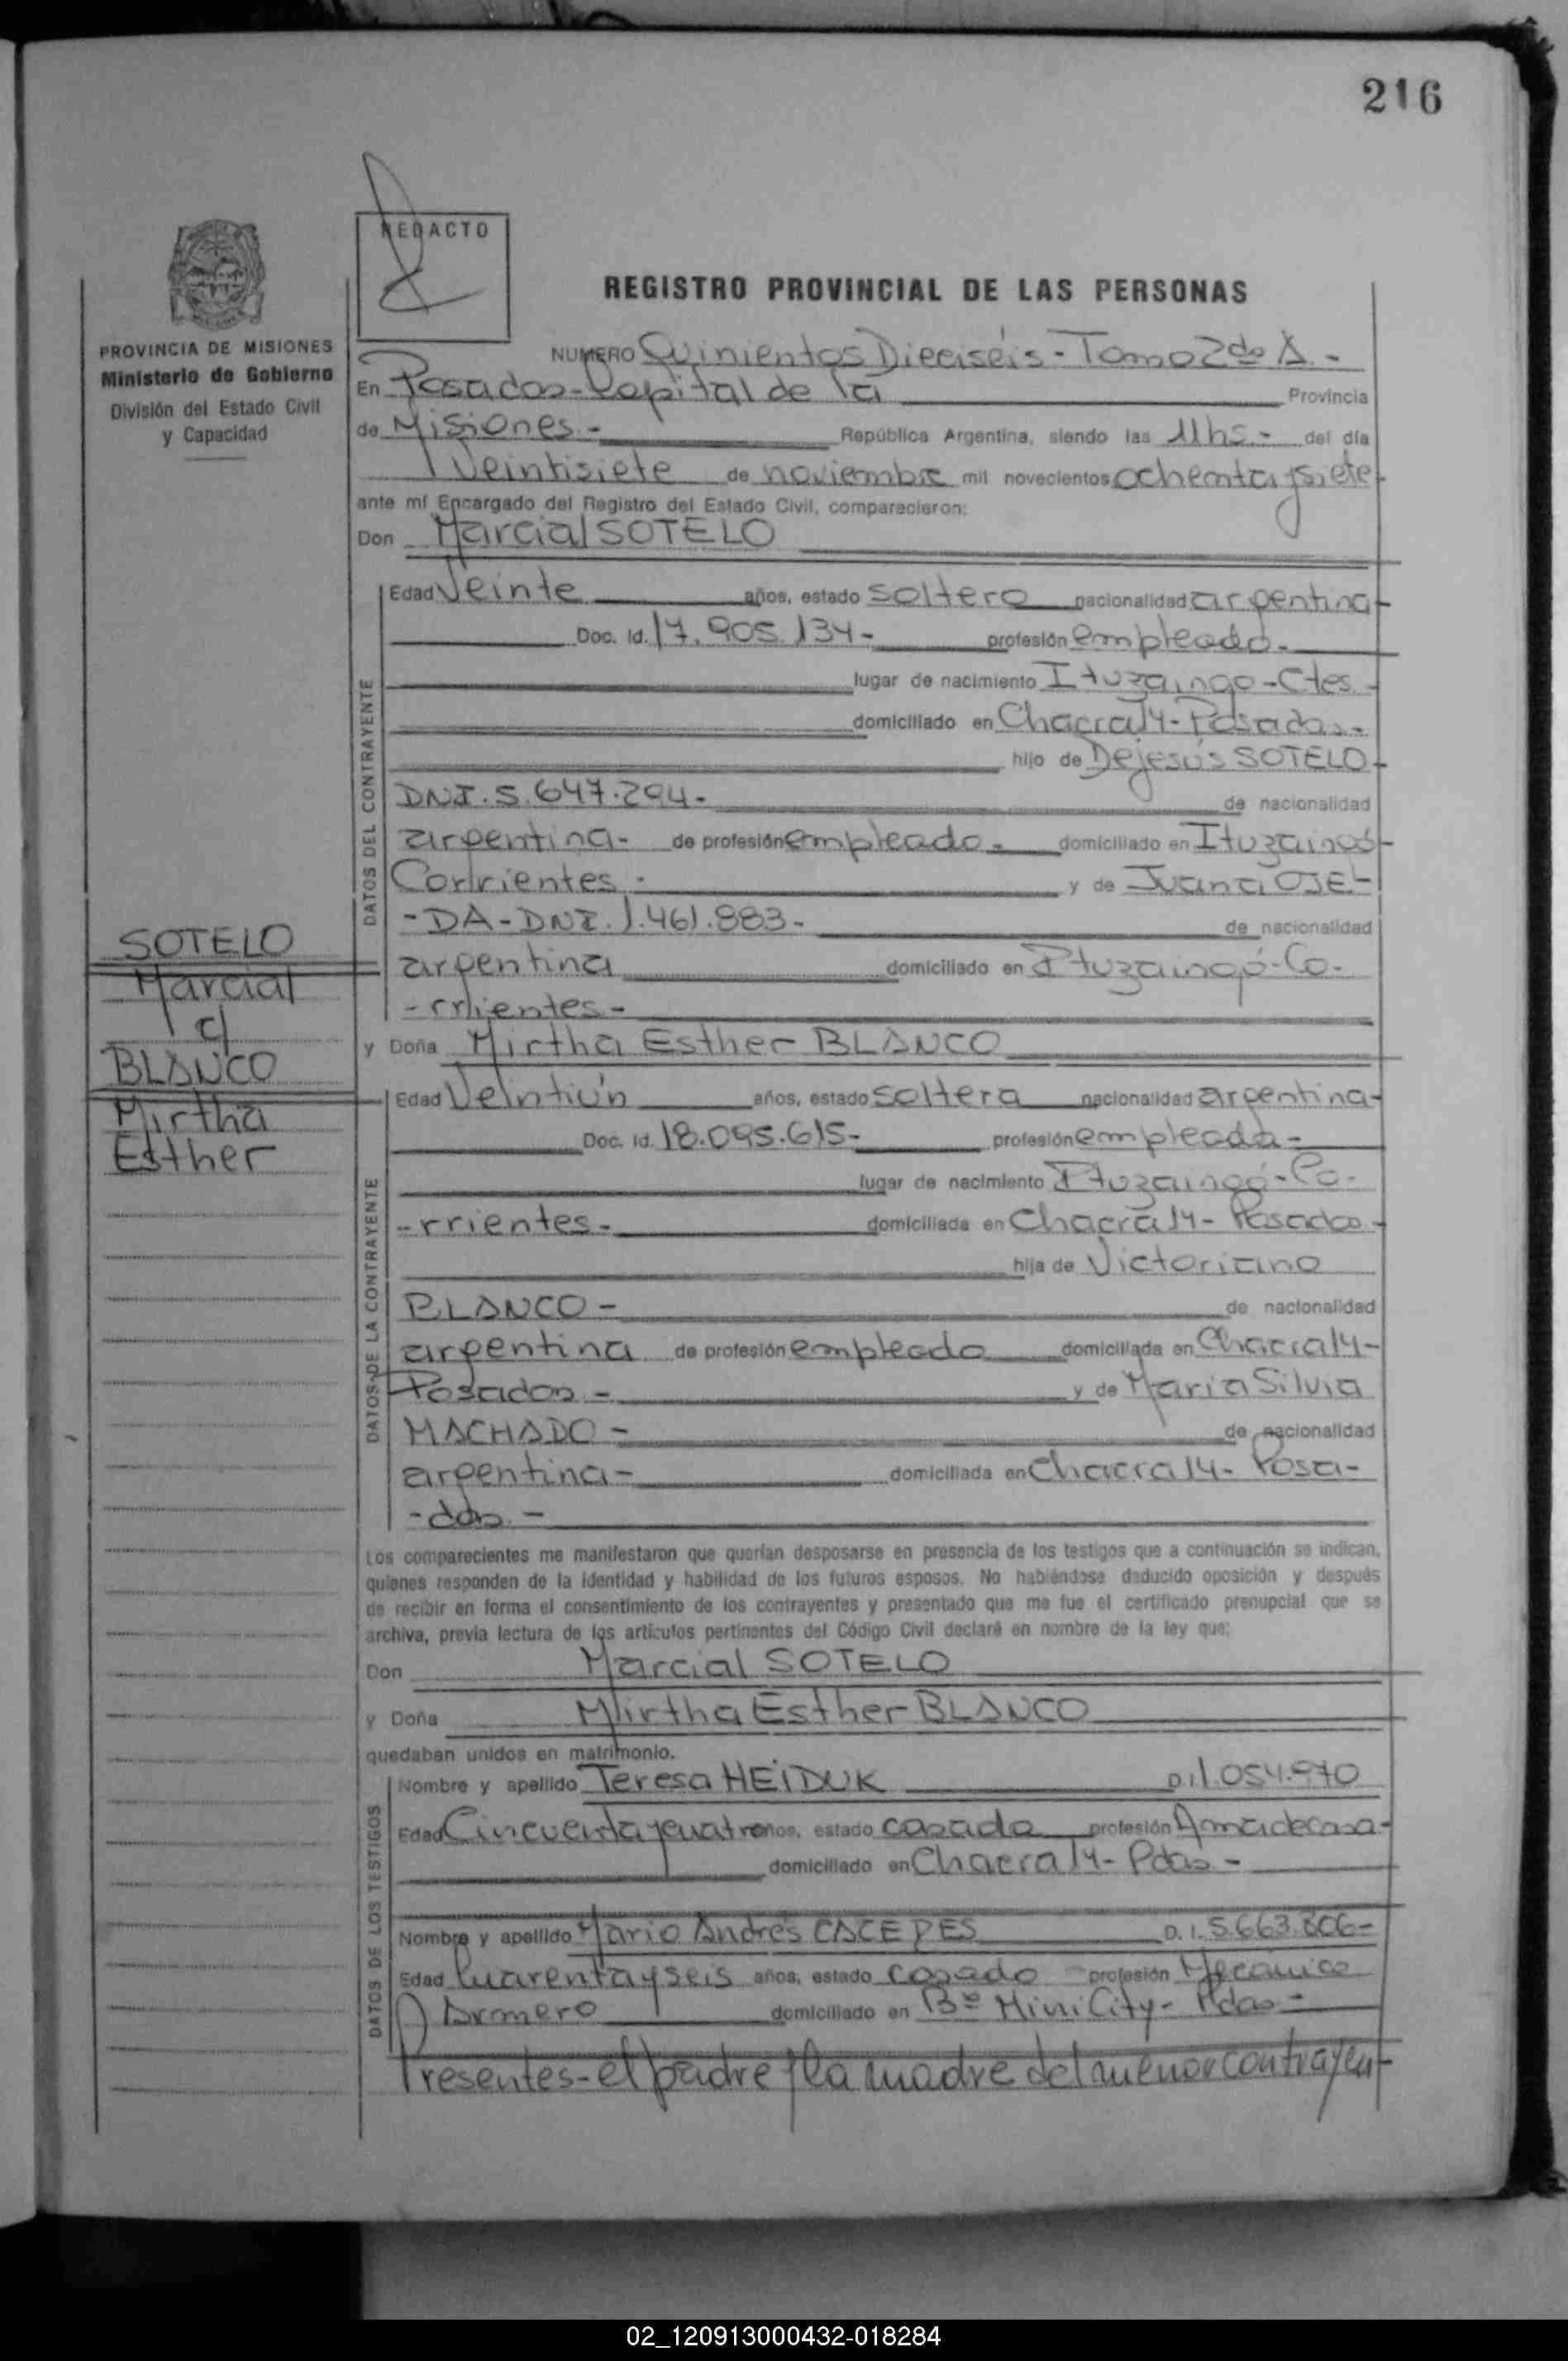 216
REDACTO
REGISTRO PROVINCIAL DE LAS PERSONAS
PROVINCIA DE MISIONES
Ministerio de Gobierno
División del Estado Civil
y Capacidad
NUMERO Quinientos Dieciséis - Tomo 2do A -
En Posadas - Capital de la Provincia
de Misiones - República Argentina, siendo las 11hs - del día
Veintisiete de noviembre mil novecientos ochenta y siete
ante mí Encargado del Registro del Estado Civil, comparecieron:
Don Marcial SOTELO
DATOS DEL CONTRAYENTE
Edad Veinte años, estado soltero nacionalidad argentina
Doc. Id. 17.905.134 - profesión empleado -
lugar de nacimiento Ituzaingo - Ctes -
domiciliado en Chacra 14 - Posadas -
hijo de Dejesús SOTELO
DNI. 5.647.294 - de nacionalidad
argentina - de profesión empleado - domiciliado en Ituzaingó -
Corrientes - y de Juana OJE-
- DA - DNI. 1.461.883 - de nacionalidad
argentina domiciliado en Ituzaingó - Co-
- rrientes -
SOTELO
Marcial
c/
BLANCO
Mirtha
Esther
y Doña Mirtha Esther BLANCO
DATOS DE LA CONTRAYENTE
Edad Veintiún años, estado soltera nacionalidad argentina -
Doc. Id. 18.095.615 - profesión empleada -
lugar de nacimiento Ituzaingó - Co-
- rrientes - domiciliada en Chacra 14 - Posadas -
hija de Victoriano
BLANCO - de nacionalidad
argentina de profesión empleado domiciliada en Chacra 14 -
Posadas - y de Maria Silvia
MACHADO - de nacionalidad
argentina - domiciliada en Chacra 14 - Posa-
- das -
Los comparecientes me manifestaron que querían desposarse en presencia de los testigos que a continuación se indican,
quienes responden de la identidad y habilidad de los futuros esposos. No habiéndose deducido oposición y después
de recibir en forma el consentimiento de los contrayentes y presentado que me fue el certificado prenupcial que se
archiva, previa lectura de los artículos pertinentes del Código Civil declaré en nombre de la ley que:
Don Marcial SOTELO
y Doña Mirtha Esther BLANCO
quedaban unidos en matrimonio.
DATOS DE LOS TESTIGOS
Nombre y apellido Teresa HEIDUK D.I. 1.054.970
Edad Cincuenta y cuatro años, estado casada profesión Ama de casa -
domiciliado en Chacra 14 - Pdas -
Nombre y apellido Mario Andrés D.I. 5.663.806 -
Edad Cuarenta y seis años, estado casado profesión Mecánico
Armero domiciliado en Bº Mini City - Pdas -
Presentes - el padre y la madre del menor contrayen-
02_120913000432-018284